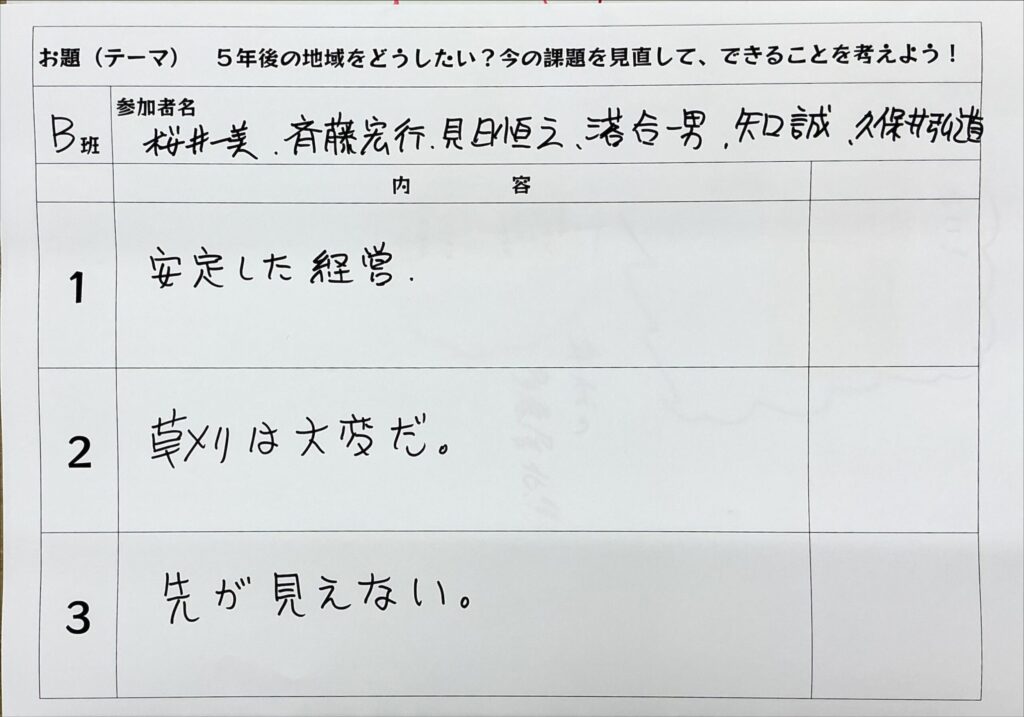 お題（テーマ）　５年後の地域をどうしたい？今の課題を見直して、できることを考えよう！
B班
参加者名
桜井一美、斉藤宏行、見目恒之、落合一男、矢口誠、久保井弘道
内　容
1
安定した経営.
2
草刈は大変だ。
3
先が見えない。